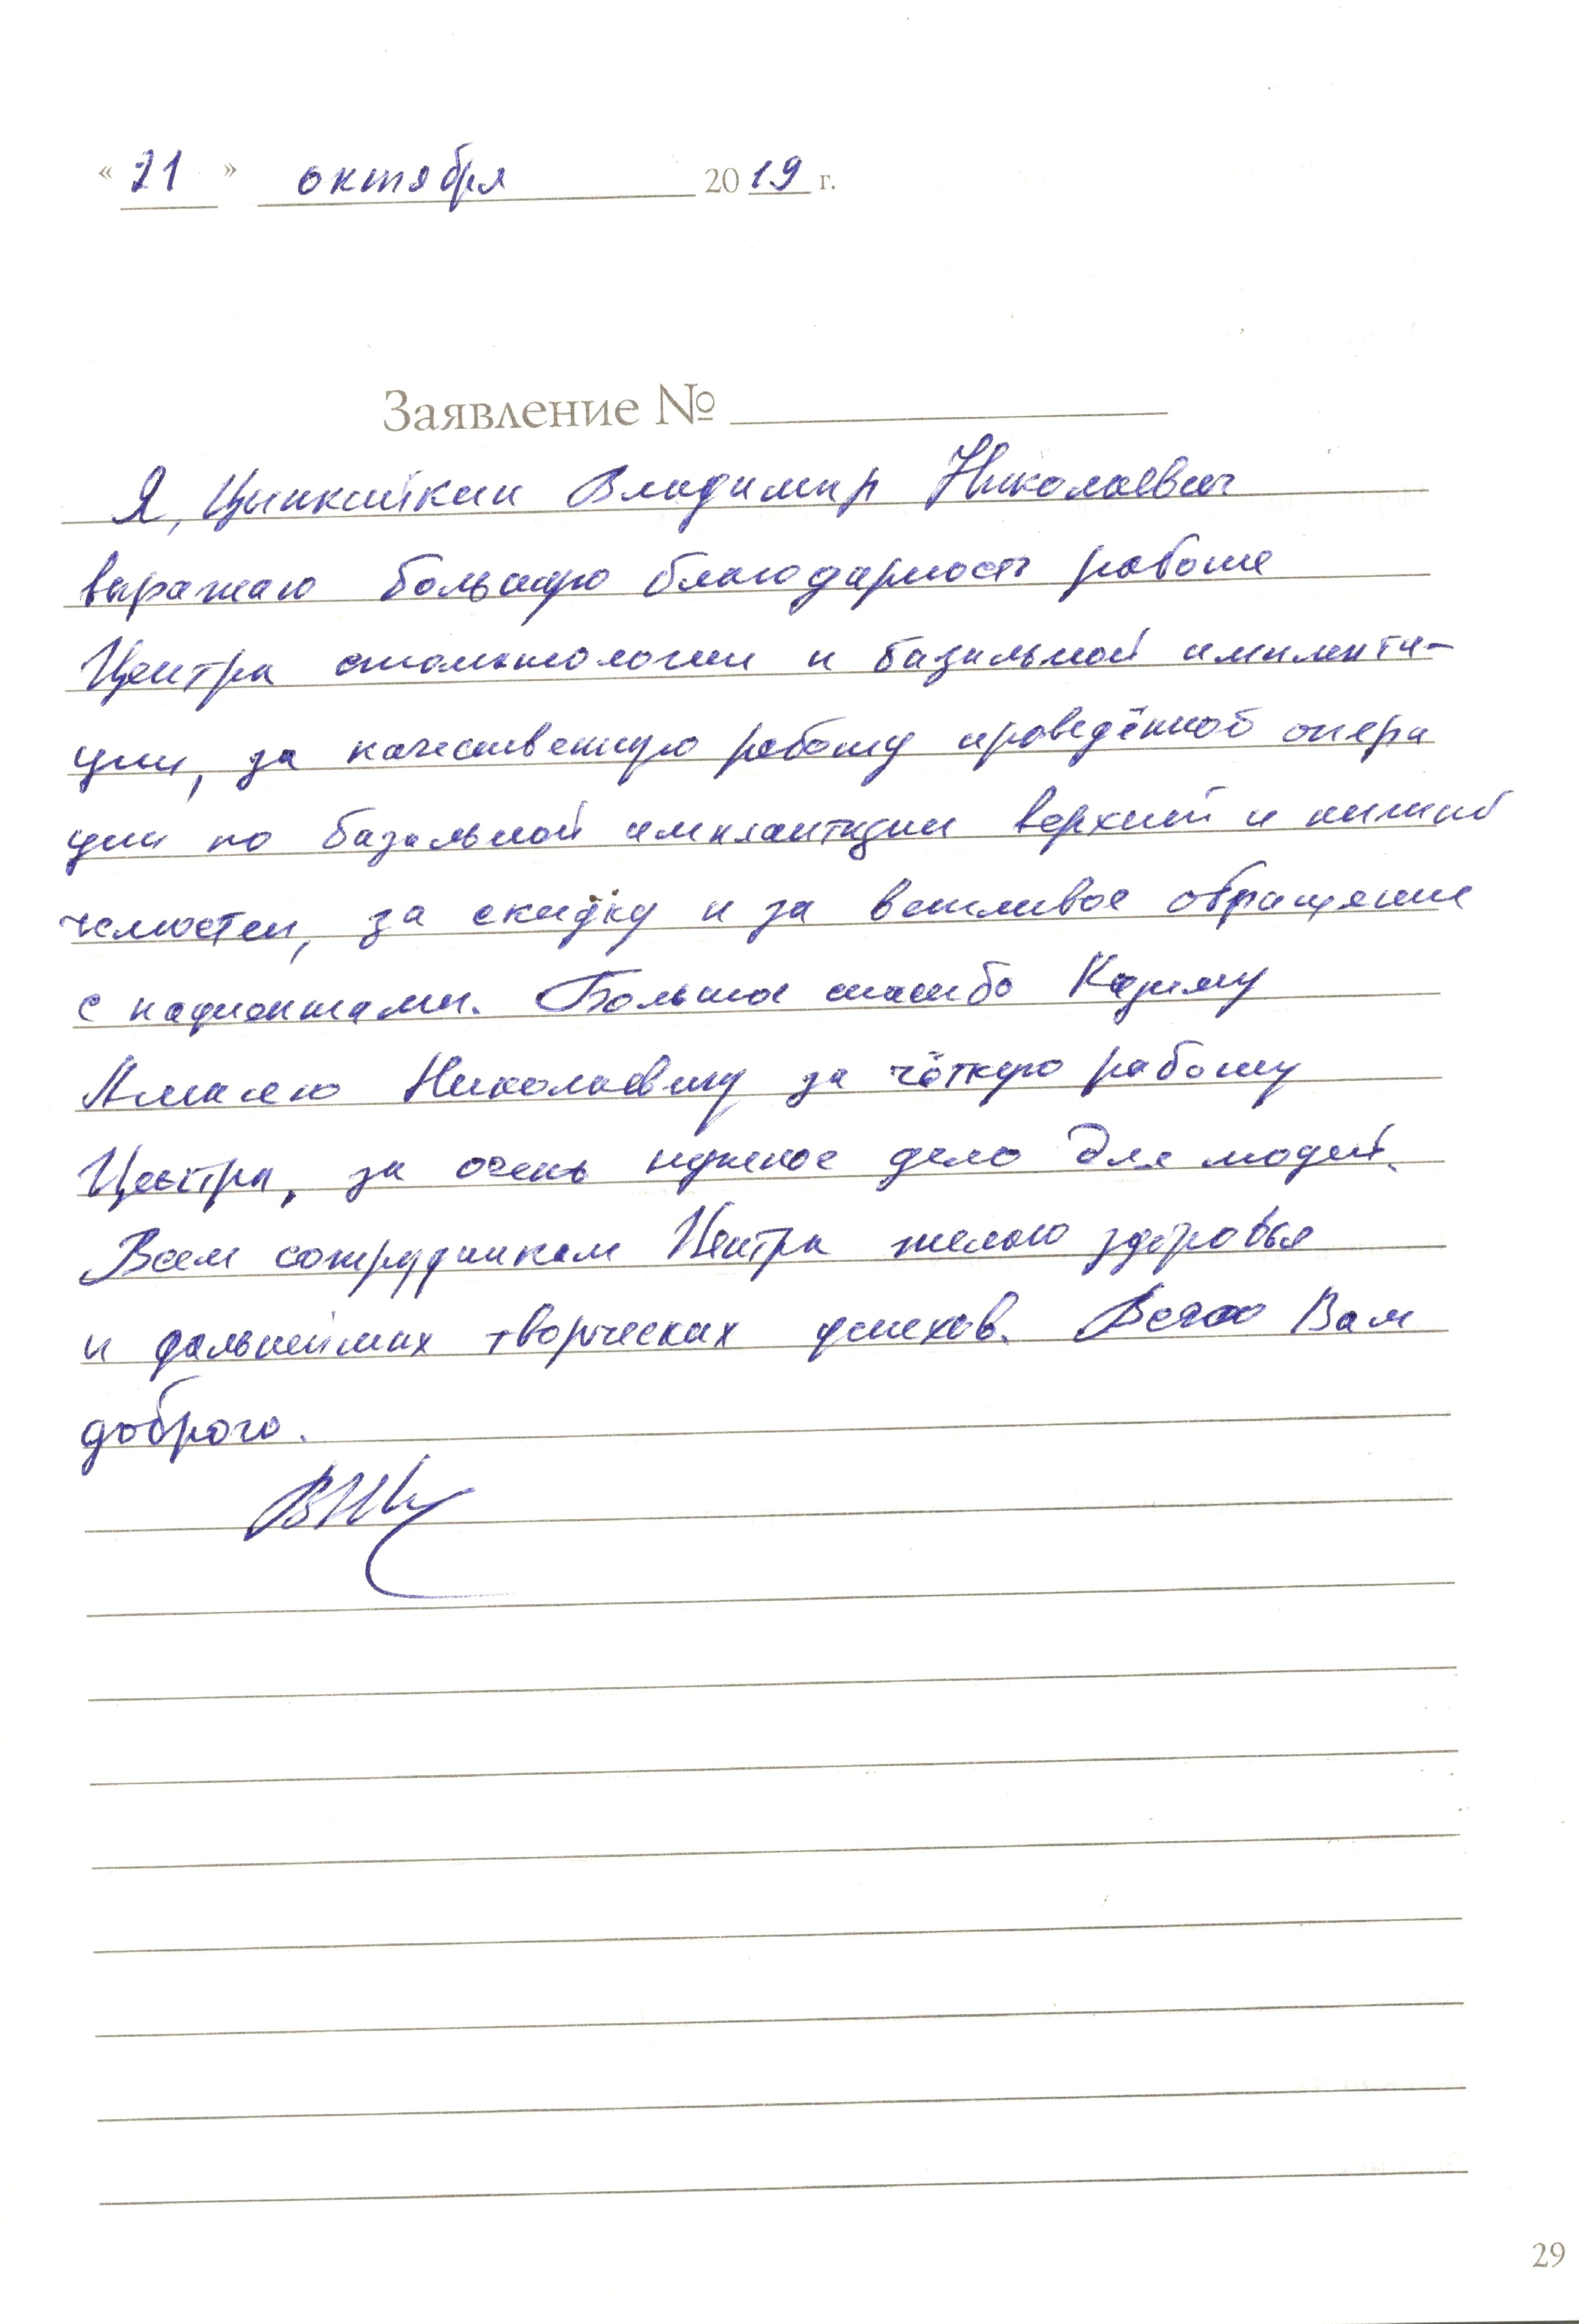 « 21 » октября 2019 г.
Заявление №
Я, Владимир Николаевич
выражаю большую благодарность работе
Центра стоматологии и базальной импланта-
ции, за качественную работу проведённой опера
ции по базальной имплантации верхней и нижней
челюстей, за скидку и за вежливое обращение
с пациентами. Большое спасибо
Николаевичу за чёткую работу
Центра, за очень нужное дело для людей.
Всем сотрудникам Центра желаю здоровья
и дальнейших творческих успехов. Всего Вам
доброго.
29